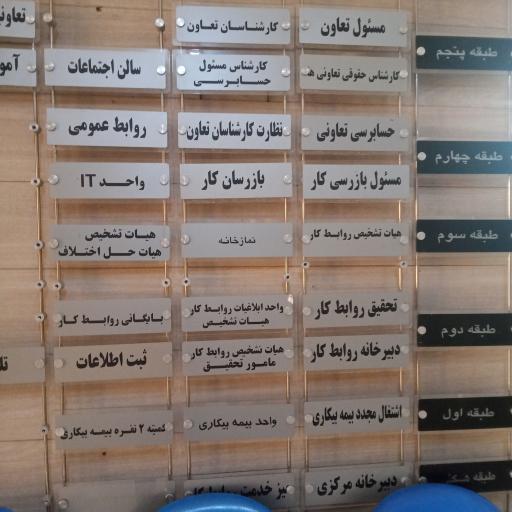 مسئول تعاون
کارشناسان تعاون
تعاونی
طبقه پنجم
کارشناس حقوقی تعاونی ها
کارشناس مسئول
حسابرسی
سالن اجتماعات
حسابرسی تعاونی
نظارت کارشناسان تعاون
روابط عمومی
طبقه چهارم
مسئول بازرسی کار
بازرسان کار
واحد IT
طبقه سوم
هیات تشخیص روابط کار
نمازخانه
هیات تشخیص
هیات حل اختلاف
طبقه دوم
تحقیق روابط کار
واحد ابلاغیات روابط کار
هیات تشخیص
بایگانی روابط کار
دبیرخانه روابط کار
هیات تشخیص روابط کار
مامور تحقیق
ثبت اطلاعات
طبقه اول
اشتغال مجدد بیمه بیکاری
واحد بیمه بیکاری
کمیته ۲ نفره بیمه بیکاری
طبقه همکف
دبیرخانه مرکزی
میز خدمت روابط کار